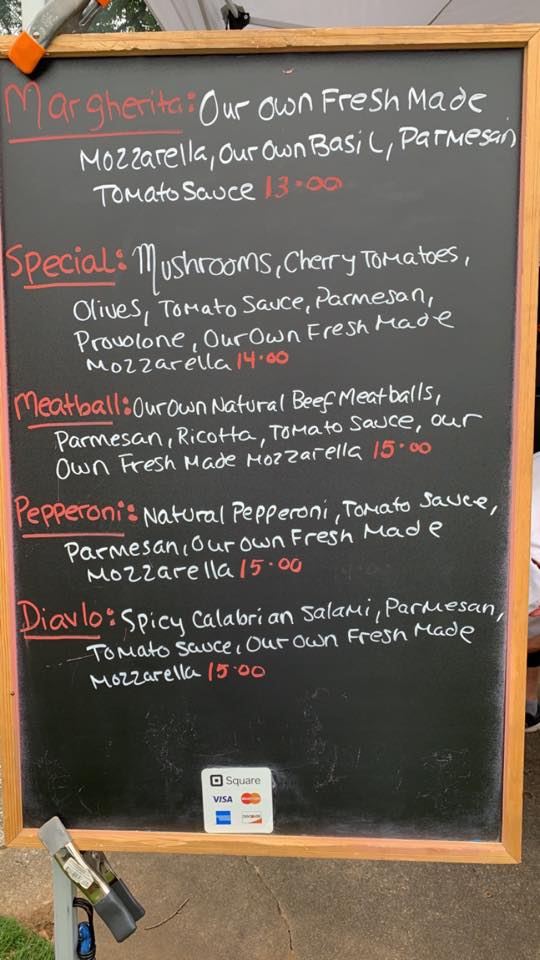 Margherita: Our own Fresh Made
Mozzarella, Our Own Basil, Parmesan
Tomato Sauce 13.00
Special: Mushrooms, Cherry Tomatoes,
Olives, Tomato Sauce, Parmesan,
Provolone, Our Own Fresh Made
Mozzarella 14.00
Meatball: Our Own Natural Beef Meatballs,
Parmesan, Ricotta, Tomato Sauce, our
Own Fresh Made Mozzarella 15.00
Pepperoni: Natural Pepperoni, Tomato Sauce,
Parmesan, Our own Fresh Made
Mozzarella 15.00
Diavlo: Spicy Calabrian Salami, Parmesan,
Tomato Sauce, Our Own Fresh Made
Mozzarella 15.00
Square
VISA MasterCard
DISCOVER